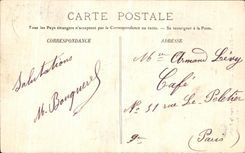 CARTE POSTALE
Tous les Pays étrangers n'acceptent pas la Correspondance au recto. - Se renseigner à la Poste.
CORRESPONDANCE
ADRESSE
Salutations
M. Bouquerel
Mr Armand Lévy
Café
No. 51 rue Le Peletier
9me
(Paris)